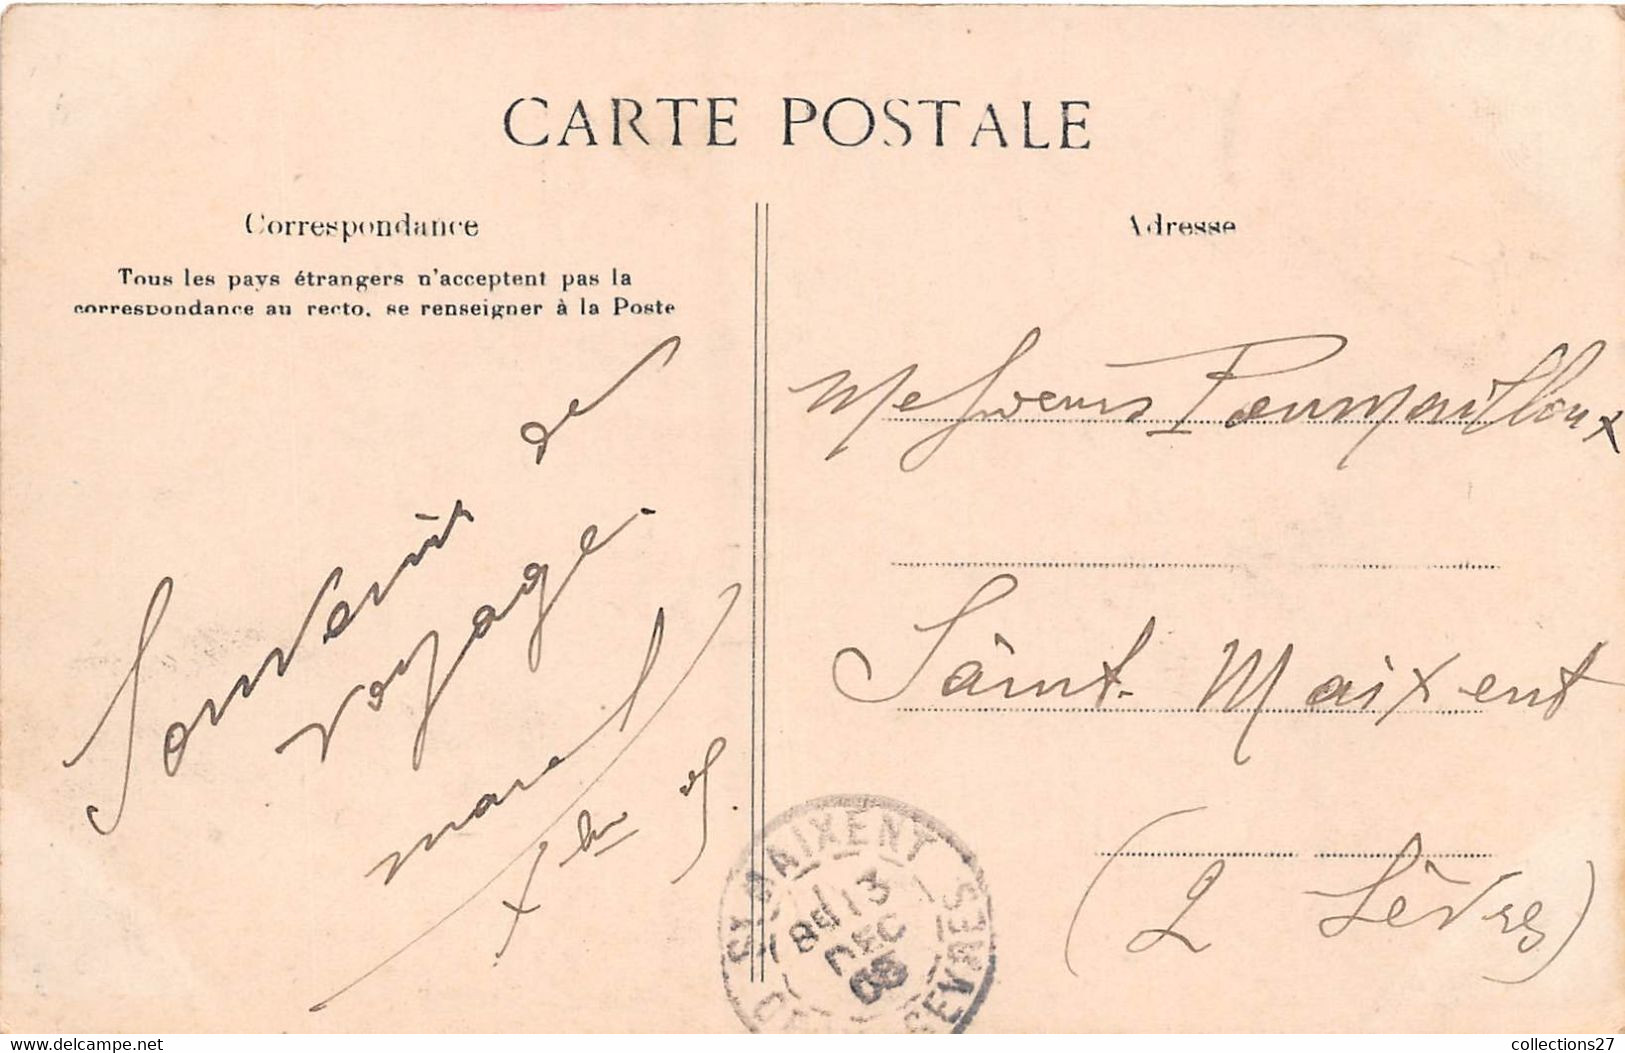 CARTE POSTALE
Correspondance
Tous les pays étrangers n'acceptent pas la
correspondance au recto, se renseigner à la Poste
Souvenir de
voyage.
marcel
Xbre 5.
Adresse
Messieurs
Saint Maixent
(2 Sèvres)
ST MAIXENT
13
DEC
SEVRES
www.delcampe.net
collections27